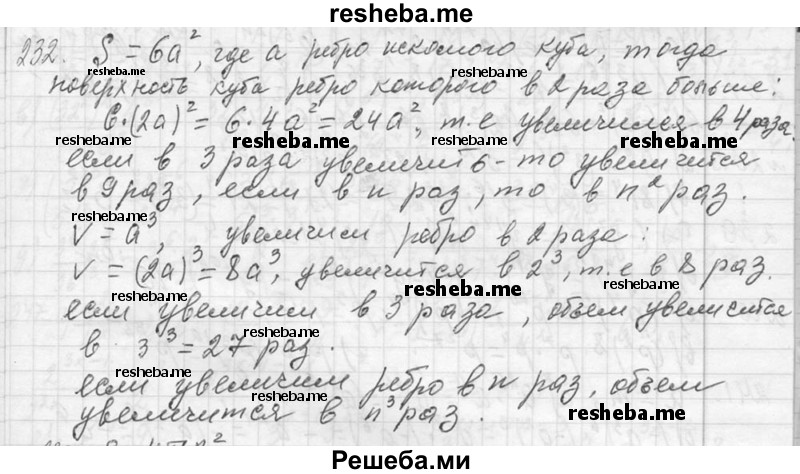 resheba.me
232. S = 6a², где a ребро искомого куба, тогда
resheba.me resheba.me
поверхность куба ребро которого в 2 раза больше:
6·(2a)² = 6·4a² = 24a², т.е увеличился в 4 раза.
resheba.me resheba.me resheba.me
если в 3 раза увеличить - то увеличится
в 9 раз, если в n раз, то в n² раз.
resheba.me resheba.me resheba.me
V = a³, увеличим ребро в 2 раза:
V = (2a)³ = 8a³, увеличится в 2³, т.е в 8 раз.
resheba.me
если увеличим в 3 раза, объем увелисится
resheba.me resheba.me
в 3³ = 27 раз.
resheba.me resheba.me
если увеличим ребро в n раз, объем
увеличится в n³ раз.
resheba.me
Решеба.ми